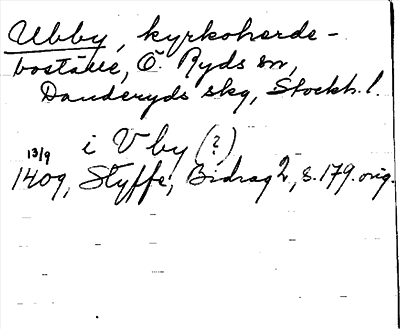 Ubby, kyrkoherde-
boställe, Ö Ryds sn,
Danderyds skg, Stockh. l.
i Vby (?)
13/9
1409, Styffe, Bidrag 2, s. 179. orig.